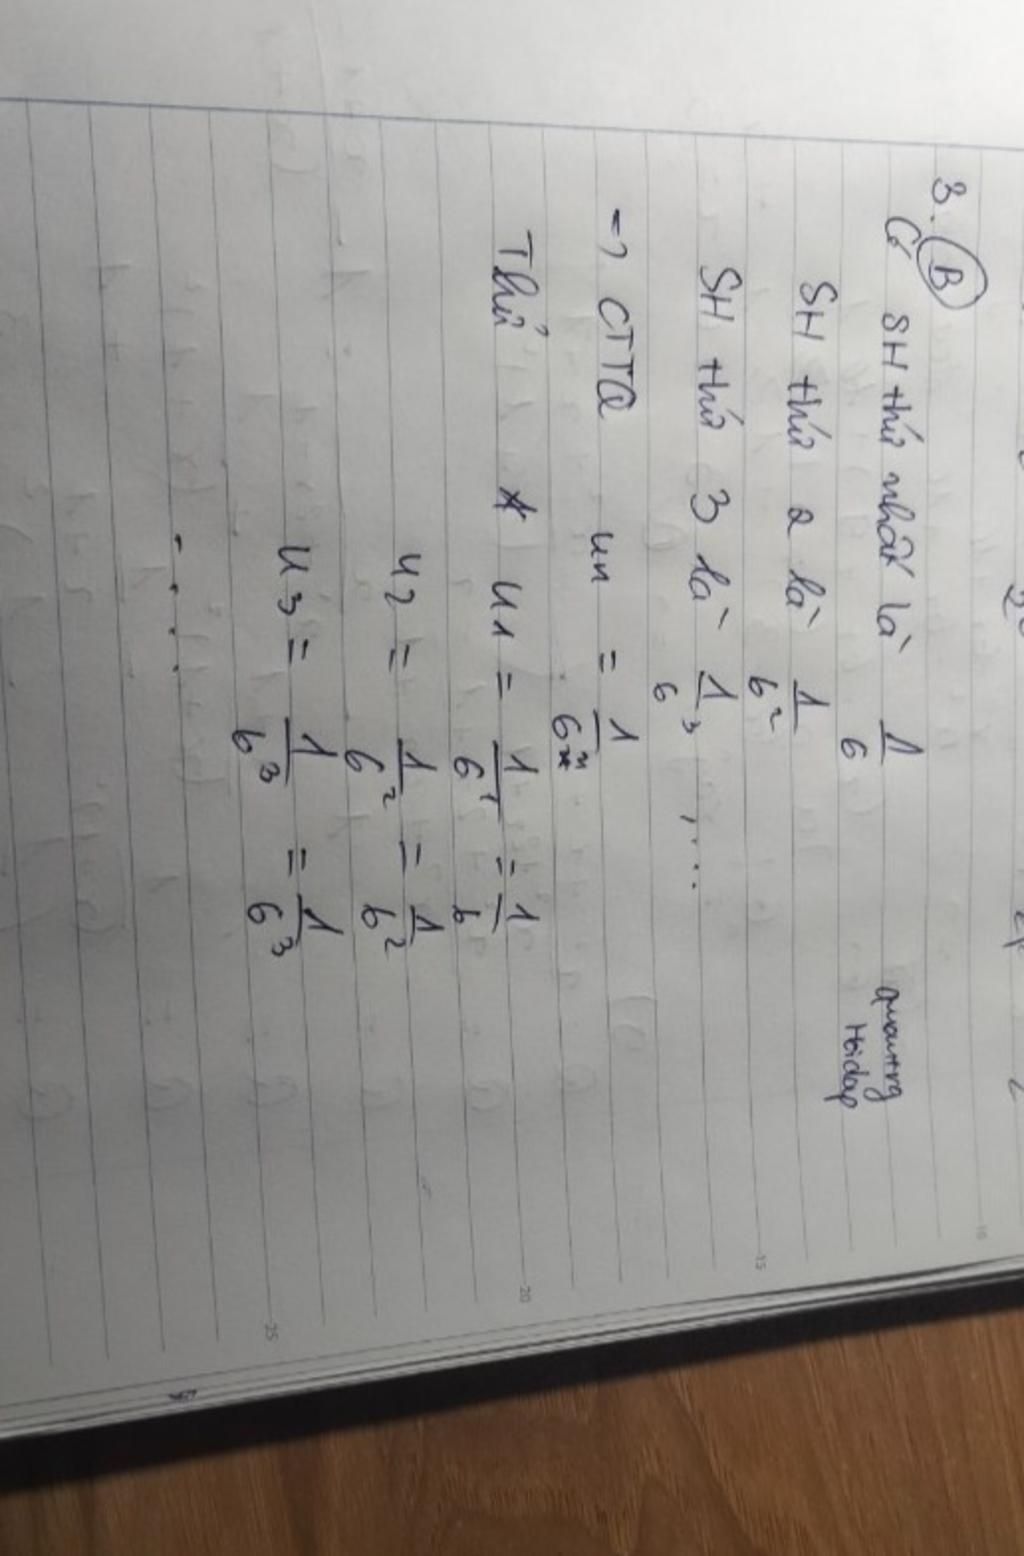 3. B
Có SH thứ nhất là 1/6
quantrg
Hoidap
SH thứ 2 là 1/6²
SH thứ 3 là 1/6³ , ...
=> CTTQ un = 1/6ⁿ
Thử u1 = 1/6¹ = 1/6
u2 = 1/6² = 1/6²
u3 = 1/6³ = 1/6³
. . . .
15
20
25